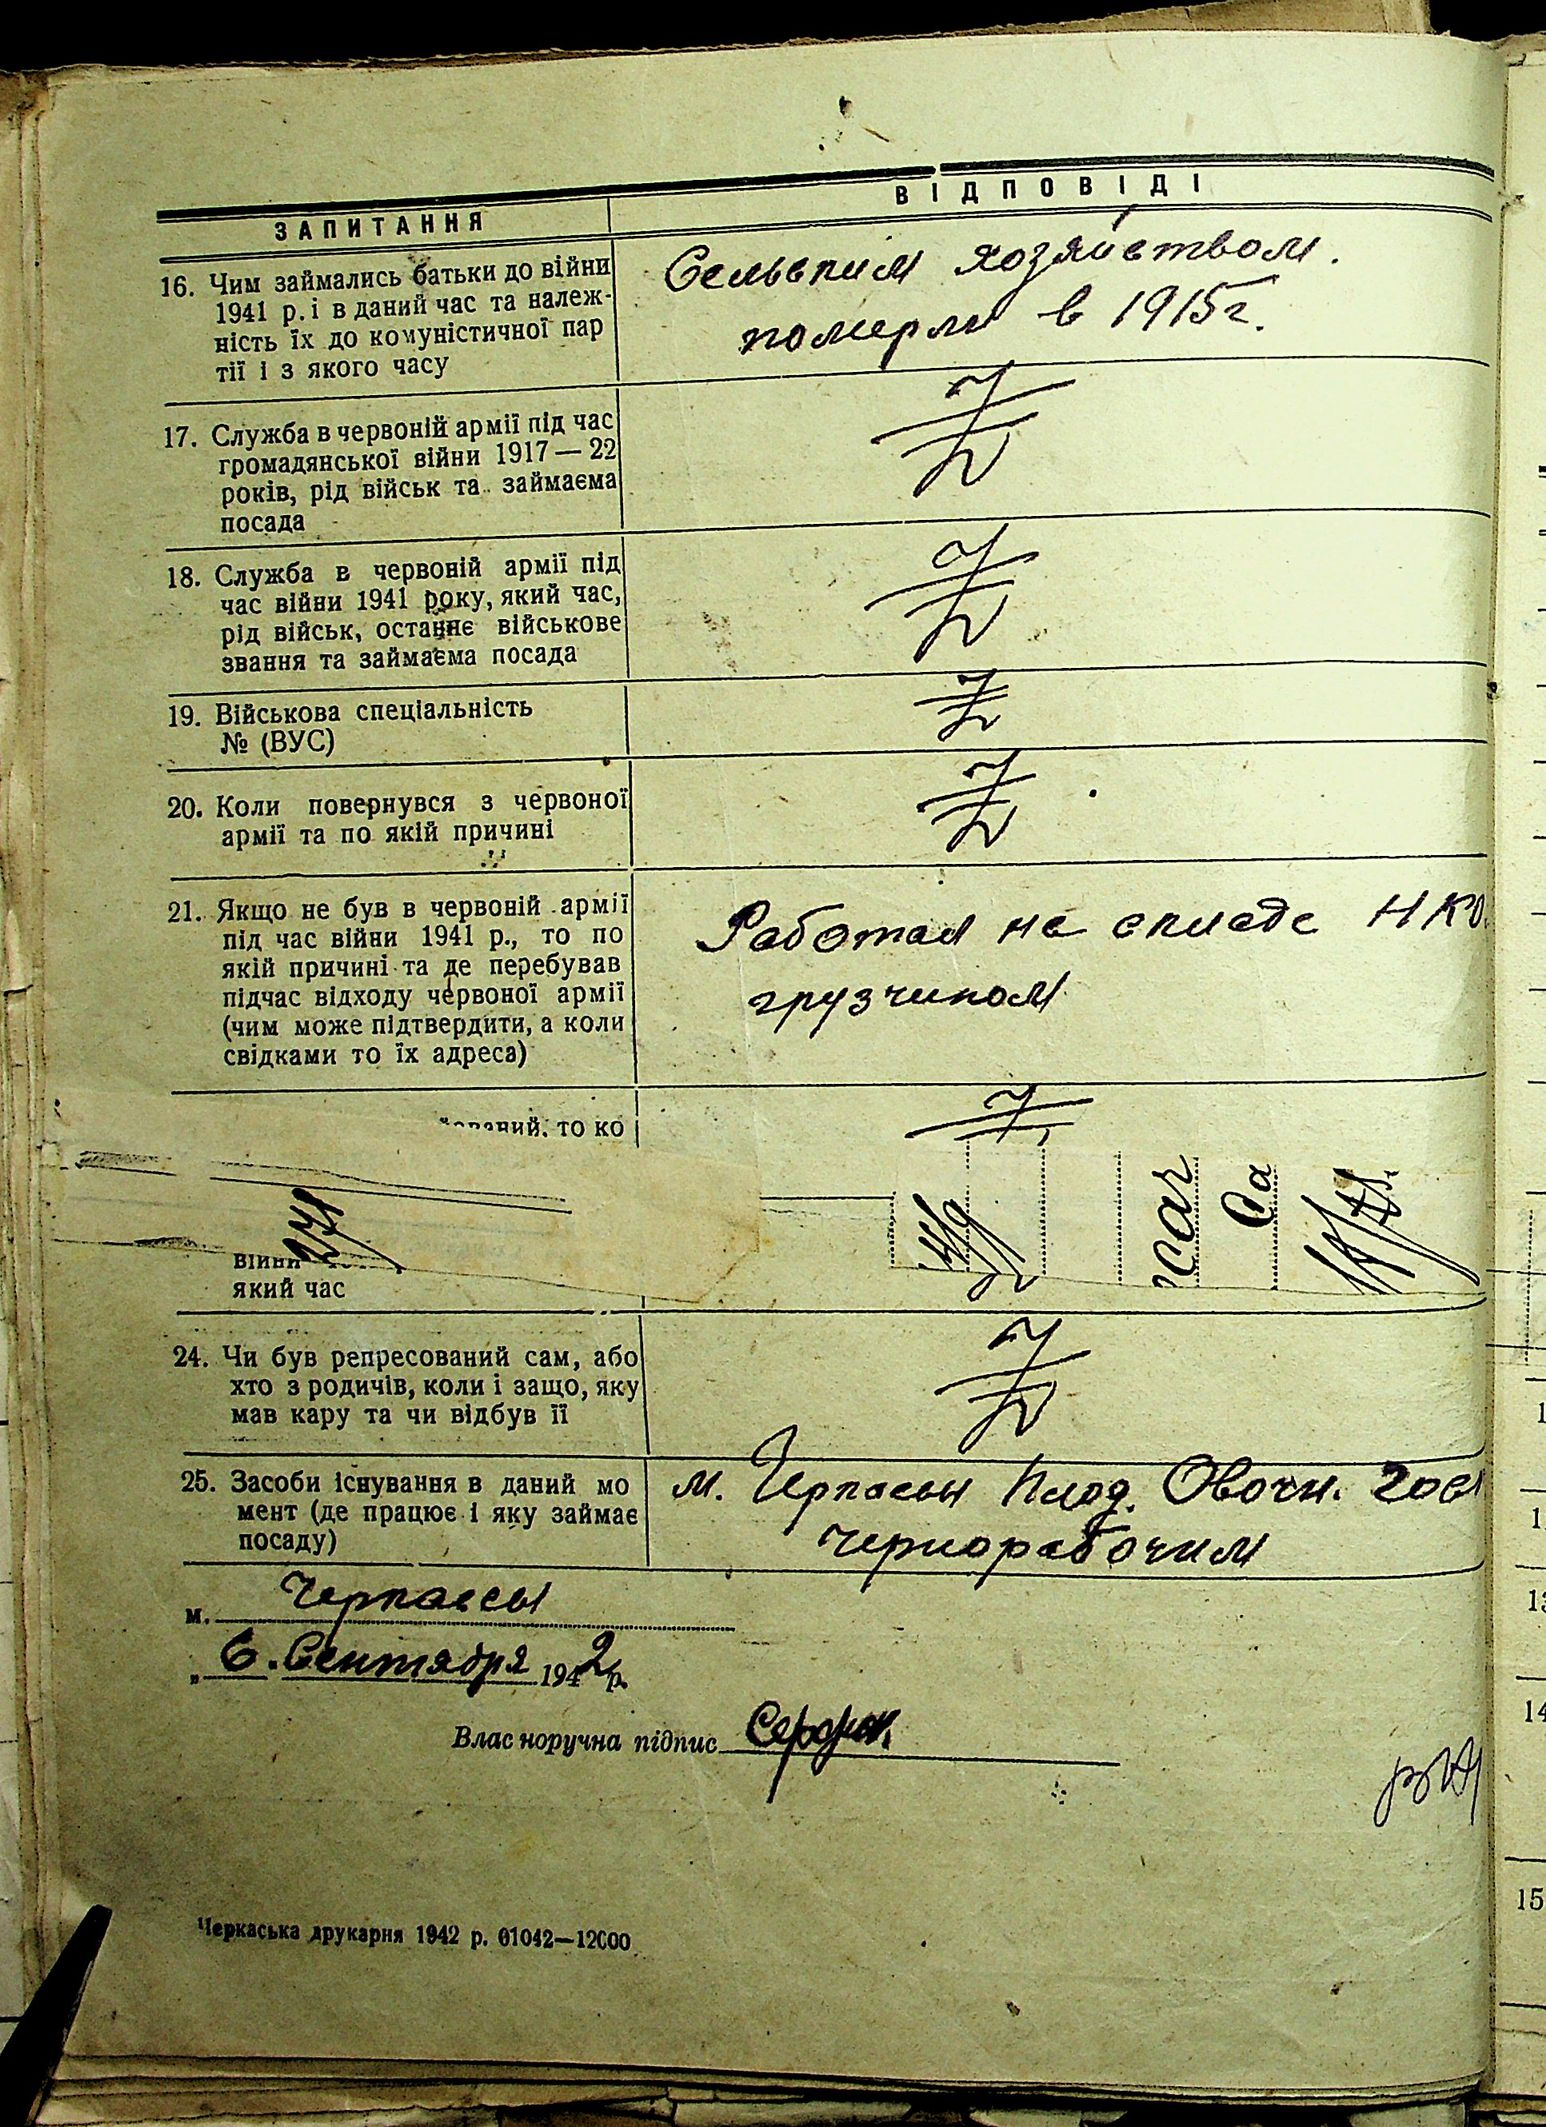 ЗАПИТАННЯ
ВІДПОВІДІ
16. Чим займались батьки до війни
1941 р. і в даний час та належ-
ність їх до комуністичної пар
тії і з якого часу
Сельским хозяйством.
померли в 1915г.
17. Служба в червоній армії під час
громадянської війни 1917 — 22
років, рід військ та займаєма
посада
18. Служба в червоній армії під
час війни 1941 року, який час,
рід військ, останнє військове
звання та займаєма посада
19. Військова спеціальність
№ (ВУС)
20. Коли повернувся з червоної
армії та по якій причині
21. Якщо не був в червоній армії
під час війни 1941 р., то по
якій причині та де перебував
підчас відходу червоної армії
(чим може підтвердити, а коли
свідками то їх адреса)
Работал на складе НКО.
грузчиком
то ко
який час
24. Чи був репресований сам, або
хто з родичів, коли і защо, яку
мав кару та чи відбув її
25. Засоби існування в даний мо
мент (де працює і яку займає
посаду)
м. Черкассы Плод. Овочн.
чернорабочим
м. Черкассы
„ 6. Сентября 1942 р.
Власноручна підпис
Черкаська друкарня 1942 р. 01042—12000